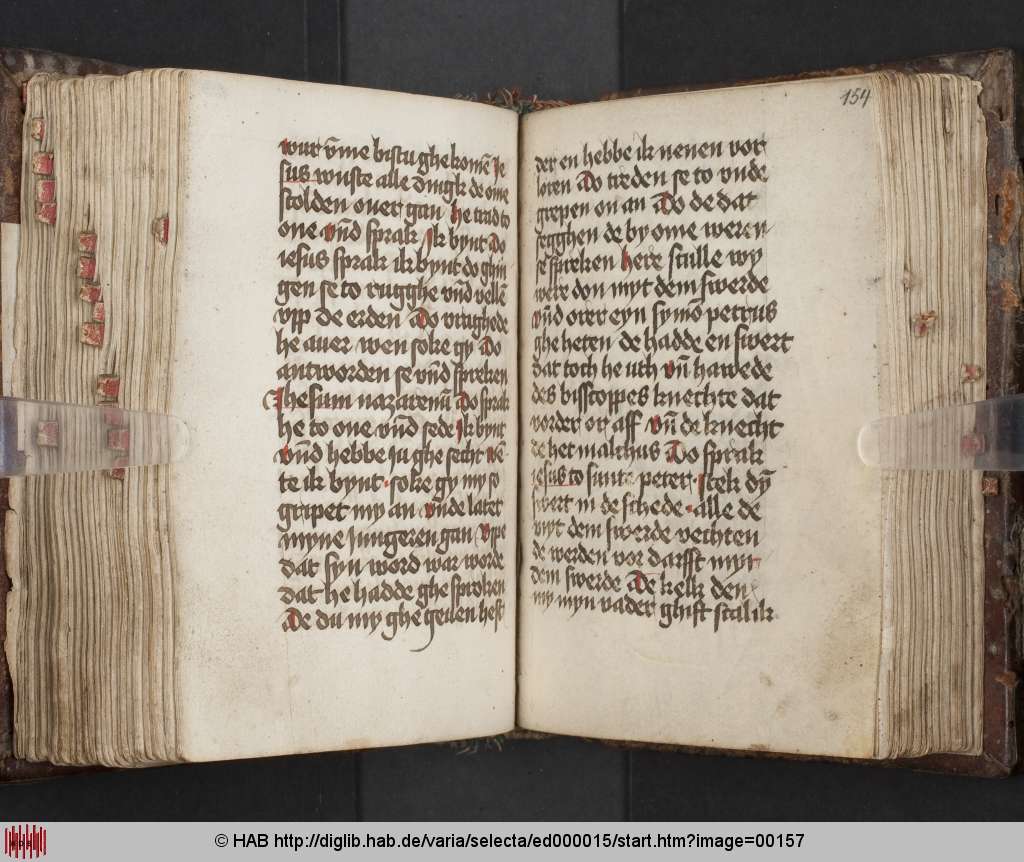 wur v̄me bistu ghe komē Je
sus wuste alle dingk de ome
scolden ouer gan he trad to
one vn̄d sprak Ik bynt Do
iesus sprak ik bynt do ghin
gen se to rugghe vn̄d vellē
vpp de erden Do vraghede
he auer wen soke gy Do
antworden se vn̄d spreken
Jhesum nazarenū Do sprak
he to one vn̄d sede Ik bynt
vn̄d hebbe ju ghe secht we
te ik bynt · soke gy my so
gripet my an vn̄de latet
myne jungeren gan Vppe
dat syn word war worde
dat he hadde ghe sproken
De du my ghe geuen hest
154
der en hebbe ik nenen vor
loren Do treden se to vnde
grepen on an Do de dat
segghen de by ome weren
se spreken here sculle wy
were don myt dem swerde
vn̄d orer eyn symō petrus
ghe heten de hadde en swert
dat toch he uth vn̄ hawede
des bisscoppes knechte dat
vorder or aff vn̄ de knecht
de het malchus Do sprak
iesus to sunte peter · stek dȳ
swert in de schede · alle de
myt dem swerde vechten
de werden vor darfft myt
dem swerde De kelk den
my myn vader ghift scal ik
© HAB http://diglib.hab.de/varia/selecta/ed000015/start.htm?image=00157